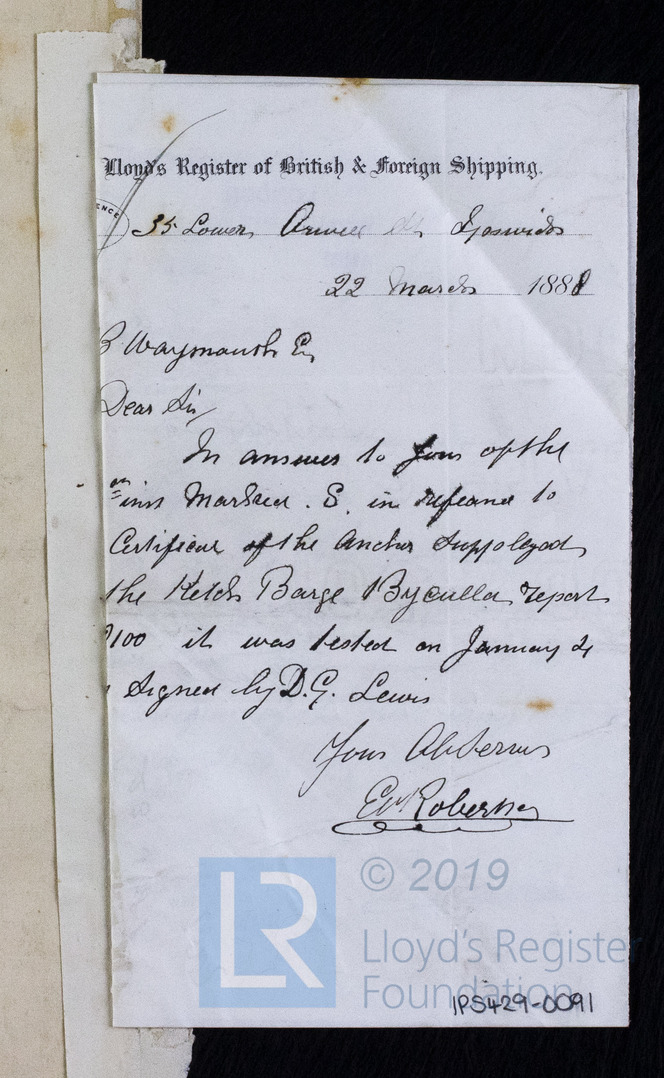 Lloyd's Register of British & Foreign Shipping.
ENCE
35 Lower Orwell St, Ipswich
22 March 1881
B Waymouth Esq
Dear Sir
In answer to yours of the
inst Marked . S. in referance to
Certificat of the Anchor Supployed
the Ketch Barge Byculla, report
9100 it was tested on January 4
Signed by D. G. Lewis
Yours Obt Servnt
Roberts
© 2019
LR
Lloyd's Register
Foundation
IPS429-0091